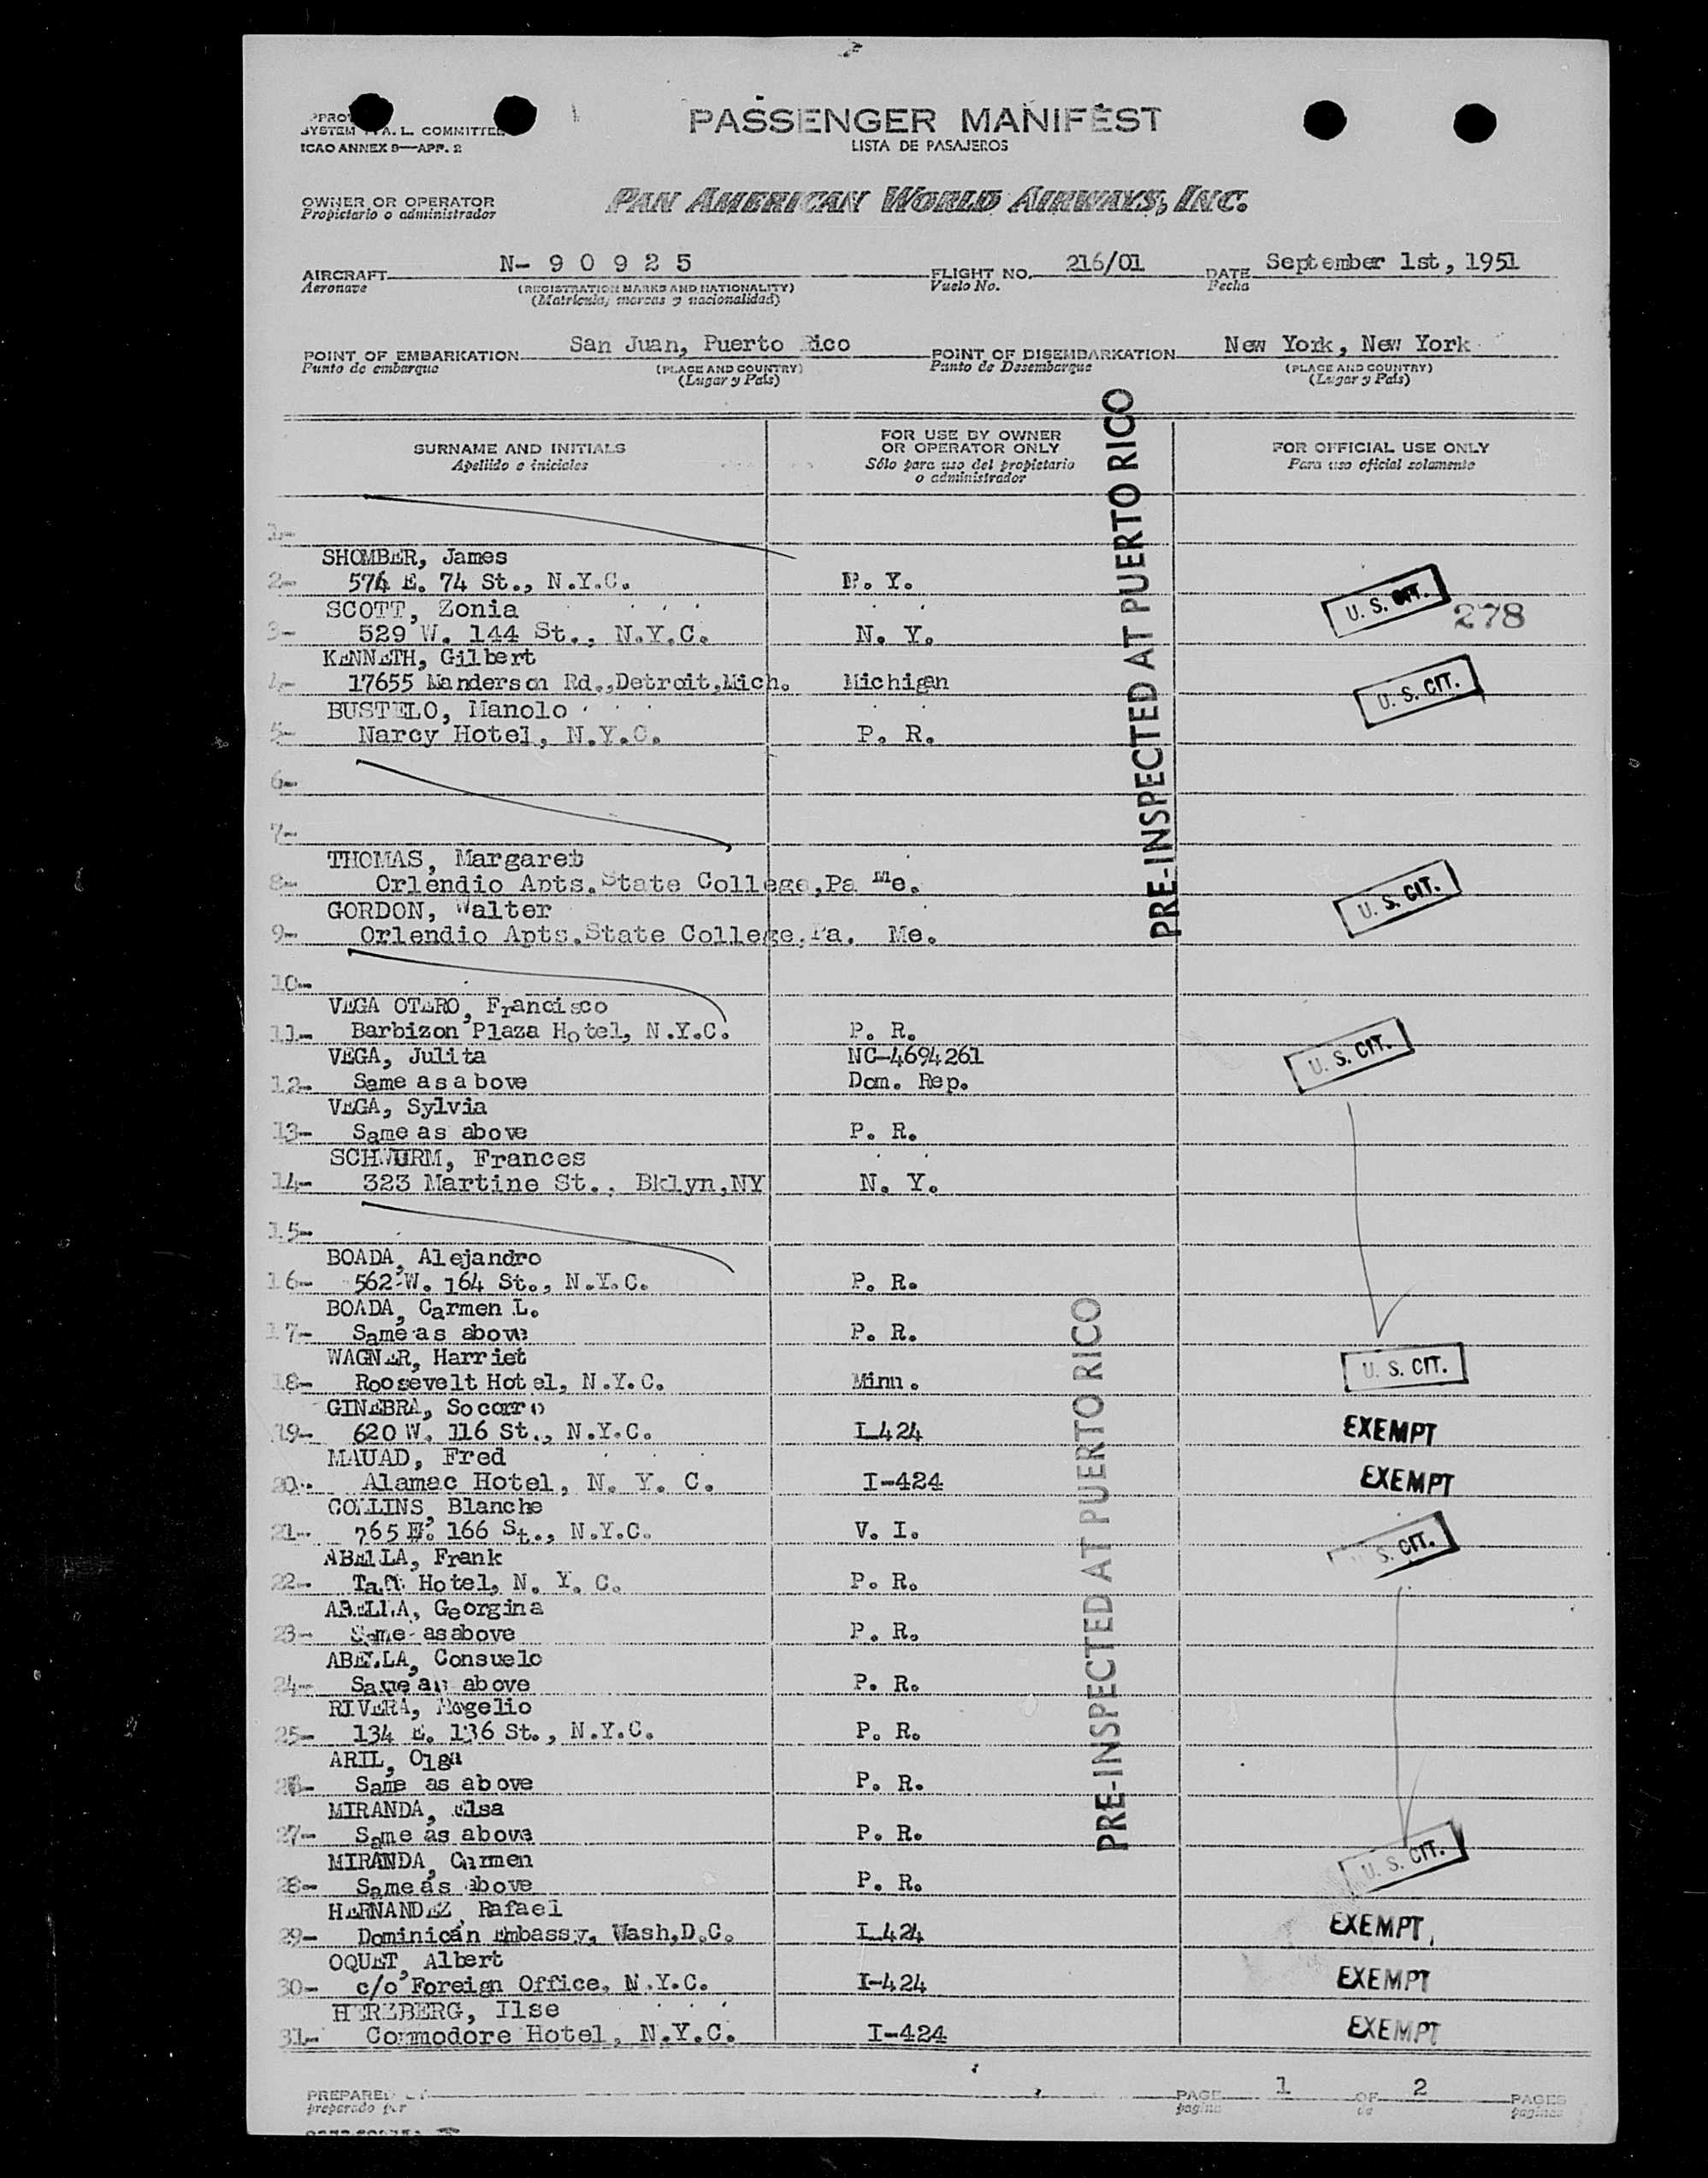 SYSTEM A. L. COMMITTEE
ICAO ANNEX 9—APP. 2
PASSENGER MANIFEST
LISTA DE PASAJEROS
OWNER OR OPERATOR
Propietario o administrador
PAN AMERICAN WORLD AIRWAYS, INC.
AIRCRAFT N- 9 0 9 2 5 FLIGHT NO. 216/01 DATE September 1st, 1951
Aeronave (REGISTRATION MARKS AND NATIONALITY) Vuelo No. Fecha
(Matrícula, marcas y nacionalidad)
POINT OF EMBARKATION San Juan, Puerto Rico POINT OF DISEMBARKATION New York, New York
Punto de embarque (PLACE AND COUNTRY) Punto de Desembarque (PLACE AND COUNTRY)
(Lugar y País) (Lugar y País)
SURNAME AND INITIALS
Apellido e iniciales
FOR USE BY OWNER
OR OPERATOR ONLY
Sólo para uso del propietario
o administrador
FOR OFFICIAL USE ONLY
Para uso oficial solamente
PRE-INSPECTED AT PUERTO RICO
1-
SHOMBER, James
2- 574 E. 74 St., N.Y.C. N. Y. U. S. CIT.
SCOTT, Zonia 278
3- 529 W. 144 St., N.Y.C. N. Y.
KENNETH, Gilbert
4- 17655 Manderson Rd.,Detroit,Mich. Michigan U. S. CIT.
BUSTELO, Manolo
5- Narcy Hotel, N.Y.C. P. R.
6-
7-
THOMAS, Margaret
8- Orlendio Apts.State College,Pa Me. U. S. CIT.
GORDON, Walter
9- Orlendio Apts.State College,Pa. Me.
10-
VEGA OTERO, Francisco
11- Barbizon Plaza Hotel, N.Y.C. P. R. U. S. CIT.
VEGA, Julita NC-4694261
12- Same as above Dom. Rep.
VEGA, Sylvia
13- Same as above P. R.
SCHWURM, Frances
14- 323 Martine St., Bklyn,NY N. Y.
15-
BOADA, Alejandro
16- 562 W. 164 St., N.Y.C. P. R.
BOADA, Carmen L.
17- Same as above P. R.
WAGNER, Harriet
18- Roosevelt Hotel, N.Y.C. Minn. U. S. CIT.
GINEBRA, Socorro
19- 620 W. 116 St., N.Y.C. I-424 EXEMPT
MAUAD, Fred
20- Alamac Hotel, N. Y. C. I-424 EXEMPT
COLLINS, Blanche
21- 765 E. 166 St., N.Y.C. V. I. S. CIT.
ABELLA, Frank
22- Taft Hotel, N. Y. C. P. R.
ABELLA, Georgina
23- Same as above P. R.
ABELLA, Consuelo
24- Same as above P. R.
RIVERA, Rogelio
25- 134 E. 136 St., N.Y.C. P. R.
ARIL, Olga
26- Same as above P. R.
MIRANDA, Elsa
27- Same as above P. R.
MIRANDA, Carmen
28- Same as above P. R. U. S. CIT.
HERNANDEZ, Rafael
29- Dominican Embassy, Wash,D.C. I-424 EXEMPT
OQUET, Albert
30- c/o Foreign Office, N.Y.C. I-424 EXEMPT
HERZBERG, Ilse
31- Commodore Hotel, N.Y.C. I-424 EXEMPT
PRE-INSPECTED AT PUERTO RICO
PREPARED PAGE 1 OF 2 PAGES
preparado por pagina de paginas